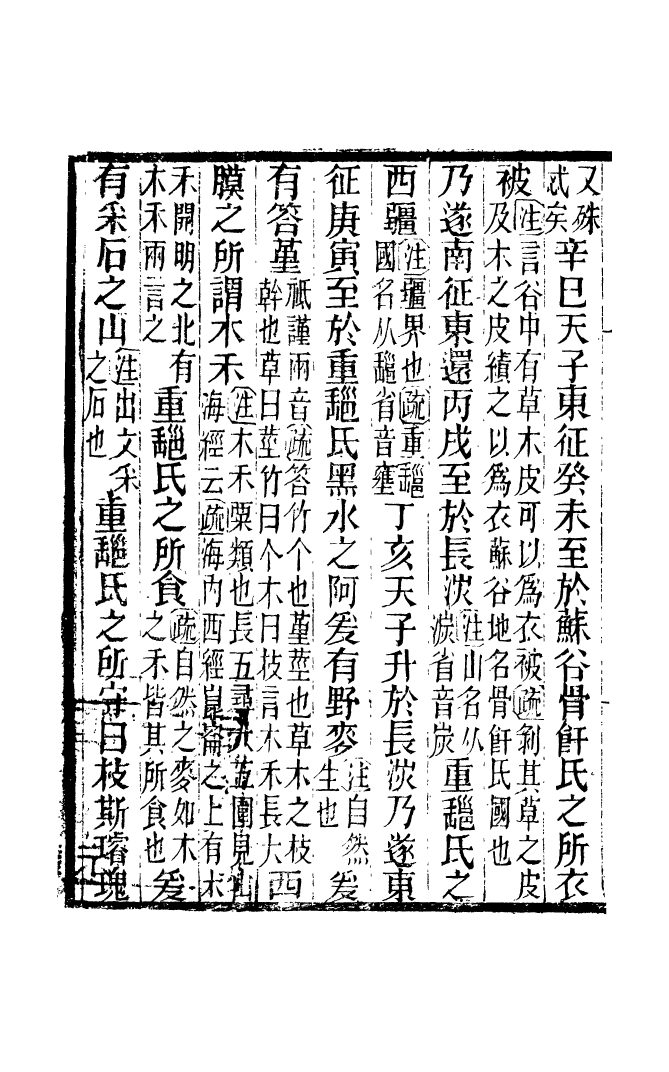 又硃弍矣辛巳天子東征癸未至於蘇谷骨飦氏之所衣
被注言谷中有草木皮可以爲衣被疏剥其草之皮及木之皮績之以爲衣蘇谷地名骨飦氏國也
乃遂南征東還丙戌至於長沷注山名从炭省音炭重䣝氏之
西疆注疆界也疏重䣝國名从䣝省音壅丁亥天子升於長沷乃遂東
征庚寅至於重䣝氏黑水之阿爰有野麥注自然生也爰
有答堇祇謹兩音疏答竹个也堇莖也草木之枝幹也草曰莖竹曰个木曰枝言木禾長大西
膜之所謂木禾注木禾粟類也長五尋大五圍見山海經云疏海內西經崑崙之上有木
禾開明之北有木禾兩言之重䣝氏之所食疏自然之麥如木之禾皆其所食也爰
有采石之山注出文采之石也重䣝氏之所守曰枝斯璿瑰